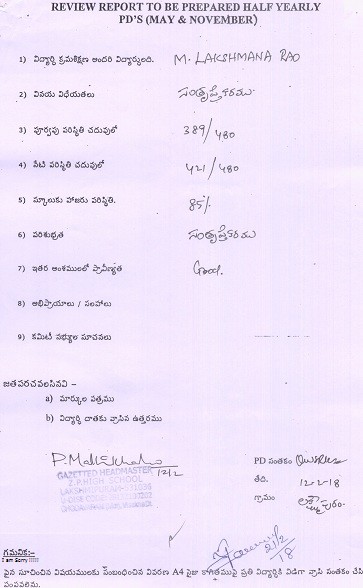 REVIEW REPORT TO BE PREPARED HALF YEARLY
PD'S (MAY & NOVEMBER)
1) విద్యార్థి క్రమశిక్షణ అందరి విద్యార్థులది. M. LAKSHMANA RAO
2) వినయ విధేయతలు సంతృప్తికరము
3) పూర్వపు పరిస్థితి చదువులో 389/480
4) నేటి పరిస్థితి చదువులో 421/480
5) స్కూలుకు హాజరు పరిస్థితి. 85%
6) పరిశుభ్రత సంతృప్తికరము
7) ఇతర అంశములలో ప్రావీణ్యత Good.
8) అభిప్రాయాలు / సలహాలు
9) కమిటీ సభ్యుల సూచనలు
జతపరచవలసినవి -
a) మార్కుల పత్రము
b) విద్యార్థి దాతకు వ్రాసిన ఉత్తరము
12/2
GAZETTED HEADMASTER
Z.P.HIGH SCHOOL
PD సంతకం
తేది. 12-2-18
గ్రామం
గమనిక:-
I am Sorry !!!!!
పైన సూచించిన విషయములకు సంబంధించిన వివరణ A4 సైజు కాగితముపై ప్రతి విద్యార్థికి విడిగా వ్రాసి సంతకం చేసి
పంపవలెను.